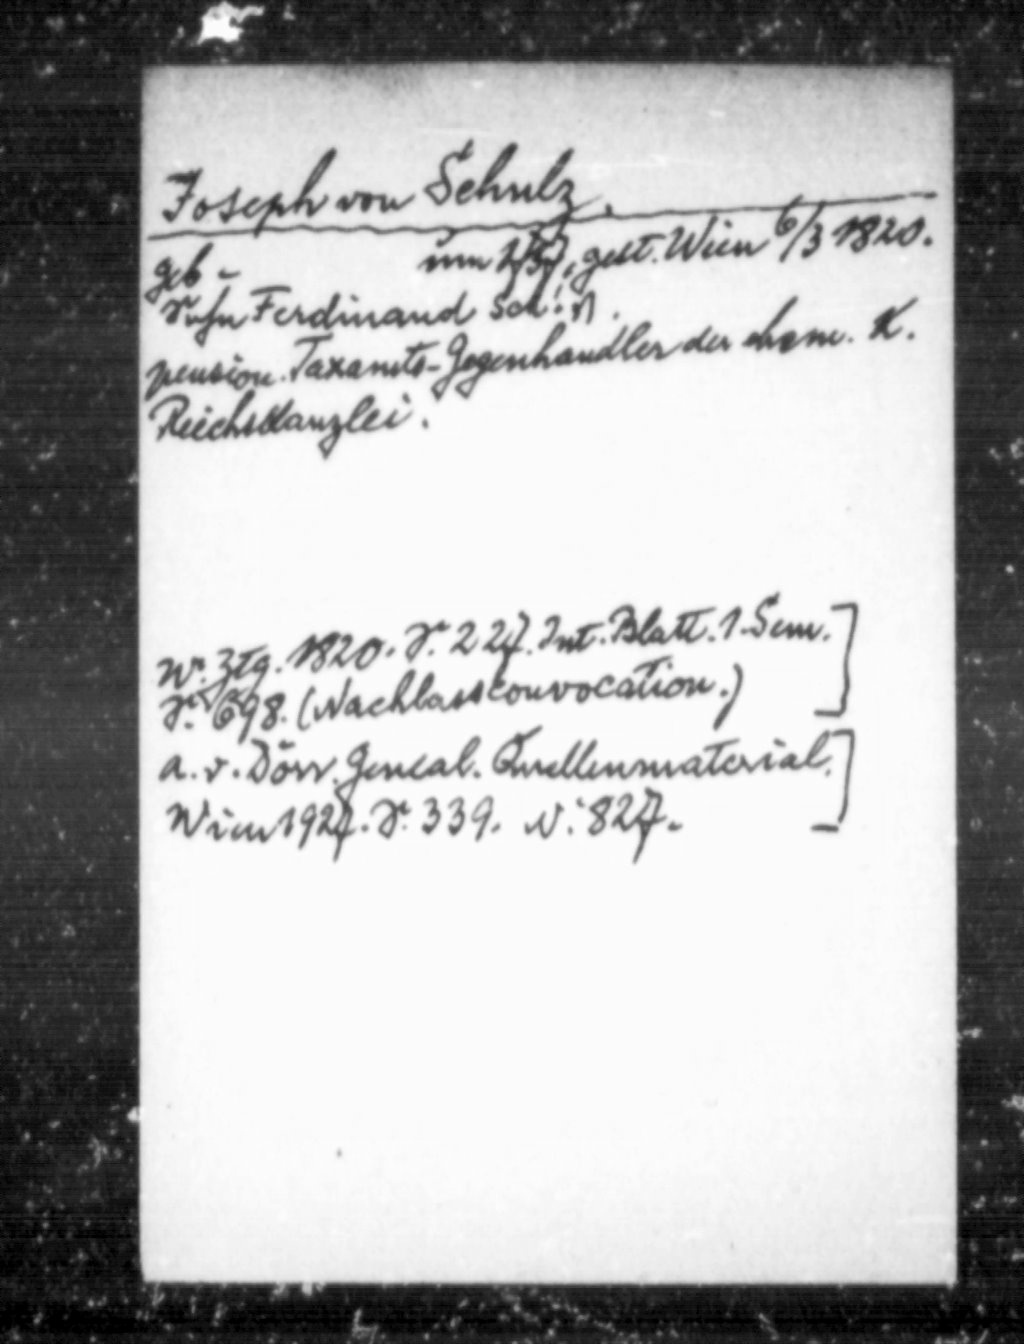 Joseph von Schulz.
geb - um 1737, gest. Wien 6/3 1820.
Sohn Ferdinand
pension. Taxamts-Gegenhandler der ehem. K.
Reichskanzlei.
Wr. Ztg. 1820. S. 227. Int. Blatt. 1. Sem.
S. 698. (Nachlassconvocation.)
A. v. Dörr. Geneal. Quellenmaterial.
Wien 1927. S. 339. N: 827.